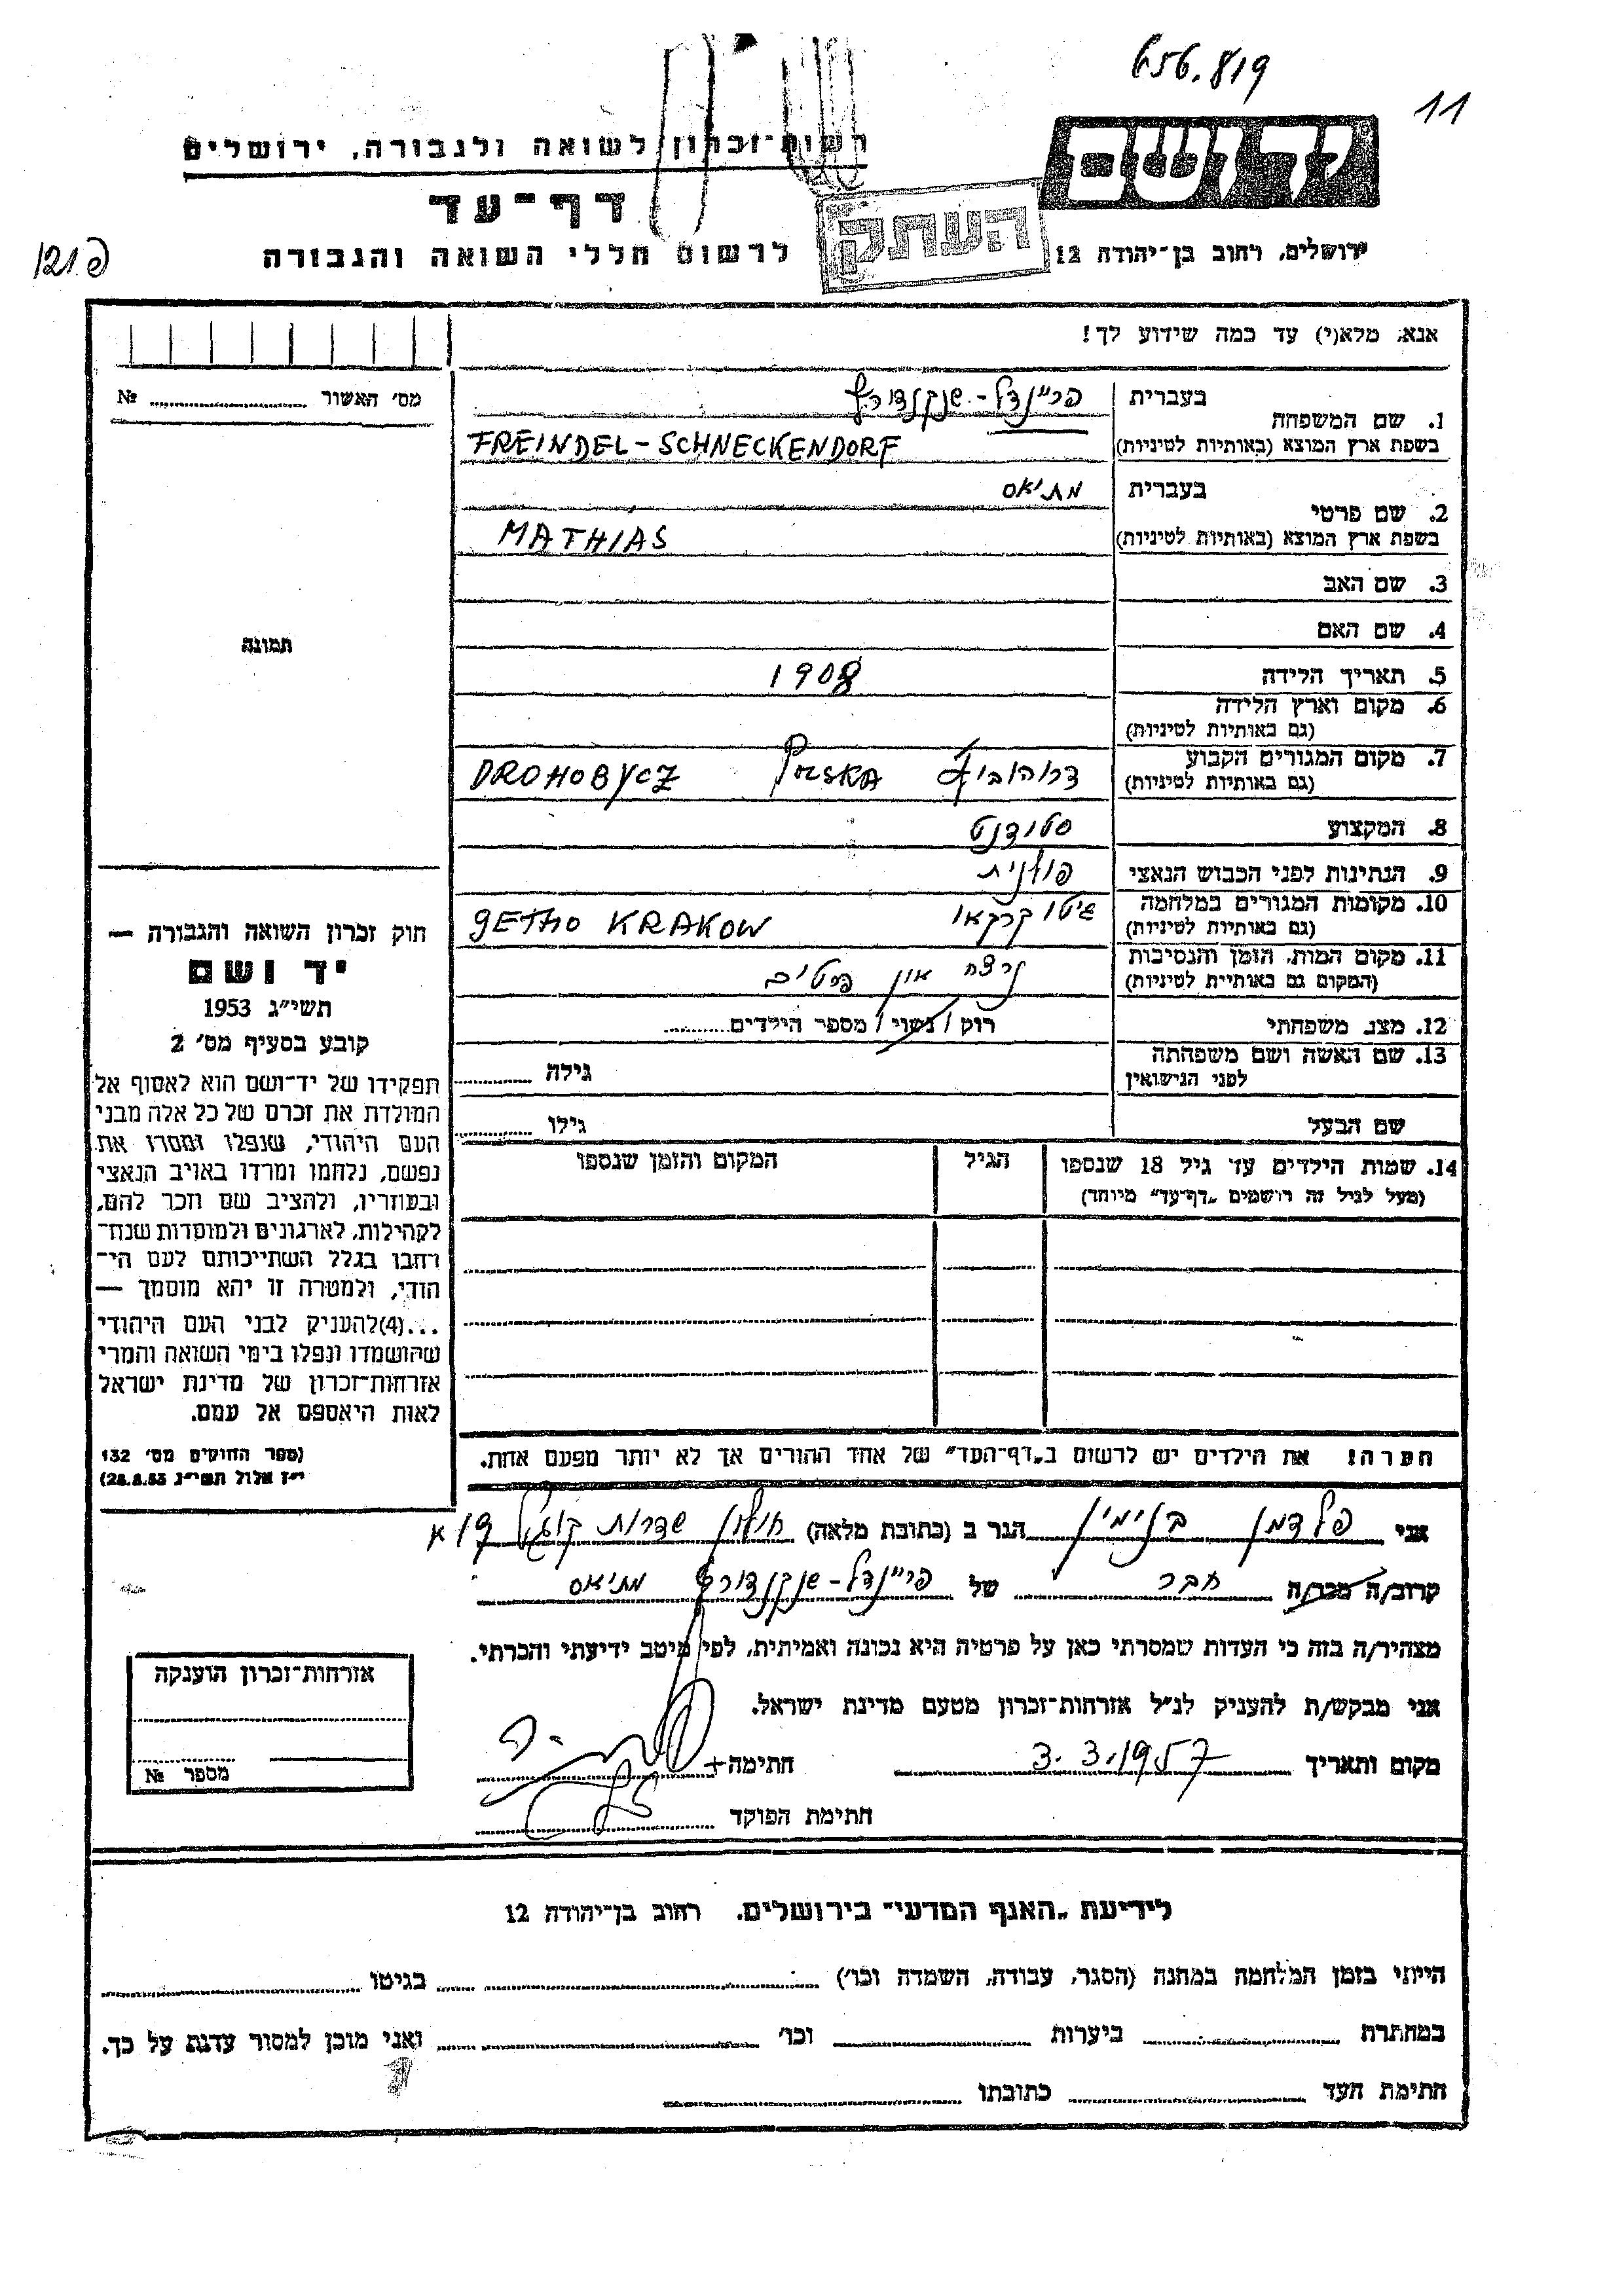 656.819
11
יד ושם
רשות־זכרון לשואה ולגבורה, ירושלים
דף־עד
העתק
ירושלים, רחוב בן־יהודה 12
לרשום חללי השואה והגבורה
פ.121
אנא, מלא(י) עד כמה שידוע לך!
מס׳ האשור ............ №
1. שם המשפחה
בעברית פריינדל-שנקנדורף
בשפת ארץ המוצא (באותיות לטיניות) FREINDEL-SCHNECKENDORF
2. שם פרטי
בעברית מתיאס
בשפת ארץ המוצא (באותיות לטיניות) MATHIAS
3. שם האב
4. שם האם
תמונה
5. תאריך הלידה 1908
6. מקום וארץ הלידה
(גם באותיות לטיניות)
7. מקום המגורים הקבוע
(גם באותיות לטיניות) דרוהוביץ POLSKA DROHOBYCZ
8. המקצוע סטודנט
9. הנתינות לפני הכבוש הנאצי פולנית
10. מקומות המגורים במלחמה
(גם באותיות לטיניות) גיטו קרקאו GETHO KRAKOW
11. מקום המות, הזמן והנסיבות
(המקום גם באותיות לטיניות) נרצח אין פרטים
12. מצב משפחתי רווק / נשוי / מספר הילדים..........
13. שם האשה ושם משפחתה
לפני הנישואין גילה ..........
שם הבעל גילו ..........
14. שמות הילדים עד גיל 18 שנספו
(מעל לגיל זה רושמים „דף־עד״ מיוחד)
הגיל
המקום והזמן שנספו
חוק זכרון השואה והגבורה —
יד ושם
תשי״ג 1953
קובע בסעיף מס׳ 2
תפקידו של יד־ושם הוא לאסוף אל
המולדת את זכרם של כל אלה מבני
העם היהודי, שנפלו ומסרו את
נפשם, נלחמו ומרדו באויב הנאצי
ובעוזריו, ולהציב שם וזכר להם,
לקהילות, לארגונים ולמוסדות שנח־
רחבו בגלל השתייכותם לעם הי־
הודי, ולמטרה זו יהא מוסמך —
...(4)להעניק לבני העם היהודי
שהושמדו ונפלו בימי השואה והמרי
אזרחות־זכרון של מדינת ישראל
לאות היאספם אל עמם.
(ספר החוקים מס׳ 132
י״ז אלול תשי״ג 28.8.53)
הערה! את הילדים יש לרשום ב„דף־העד״ של אחד ההורים אך לא יותר מפעם אחת.
אני פלדמן בנימין הגר ב (כתובת מלאה) חולון שדרות קוגל 19 א
קרוב/ה מכר/ה חבר של פריינדל-שנקנדורף מתיאס
מצהיר/ה בזה כי העדות שמסרתי כאן על פרטיה היא נכונה ואמיתית, לפי מיטב ידיעתי והכרתי.
אני מבקש/ת להעניק לנ״ל אזרחות־זכרון מטעם מדינת ישראל.
מקום ותאריך 3.3.1957 חתימה
חתימת הפוקד
אזרחות־זכרון הוענקה
מספר №
לידיעת „האגף המדעי״ בירושלים, רחוב בן־יהודה 12
הייתי בזמן המלחמה במחנה (הסגר, עבודה, השמדה וכו׳) .......... בגיטו ..........
במחתרת .......... ביערות .......... וכו׳ .......... ואני מוכן למסור עדות על כך.
חתימת העד .......... כתובתו ..........